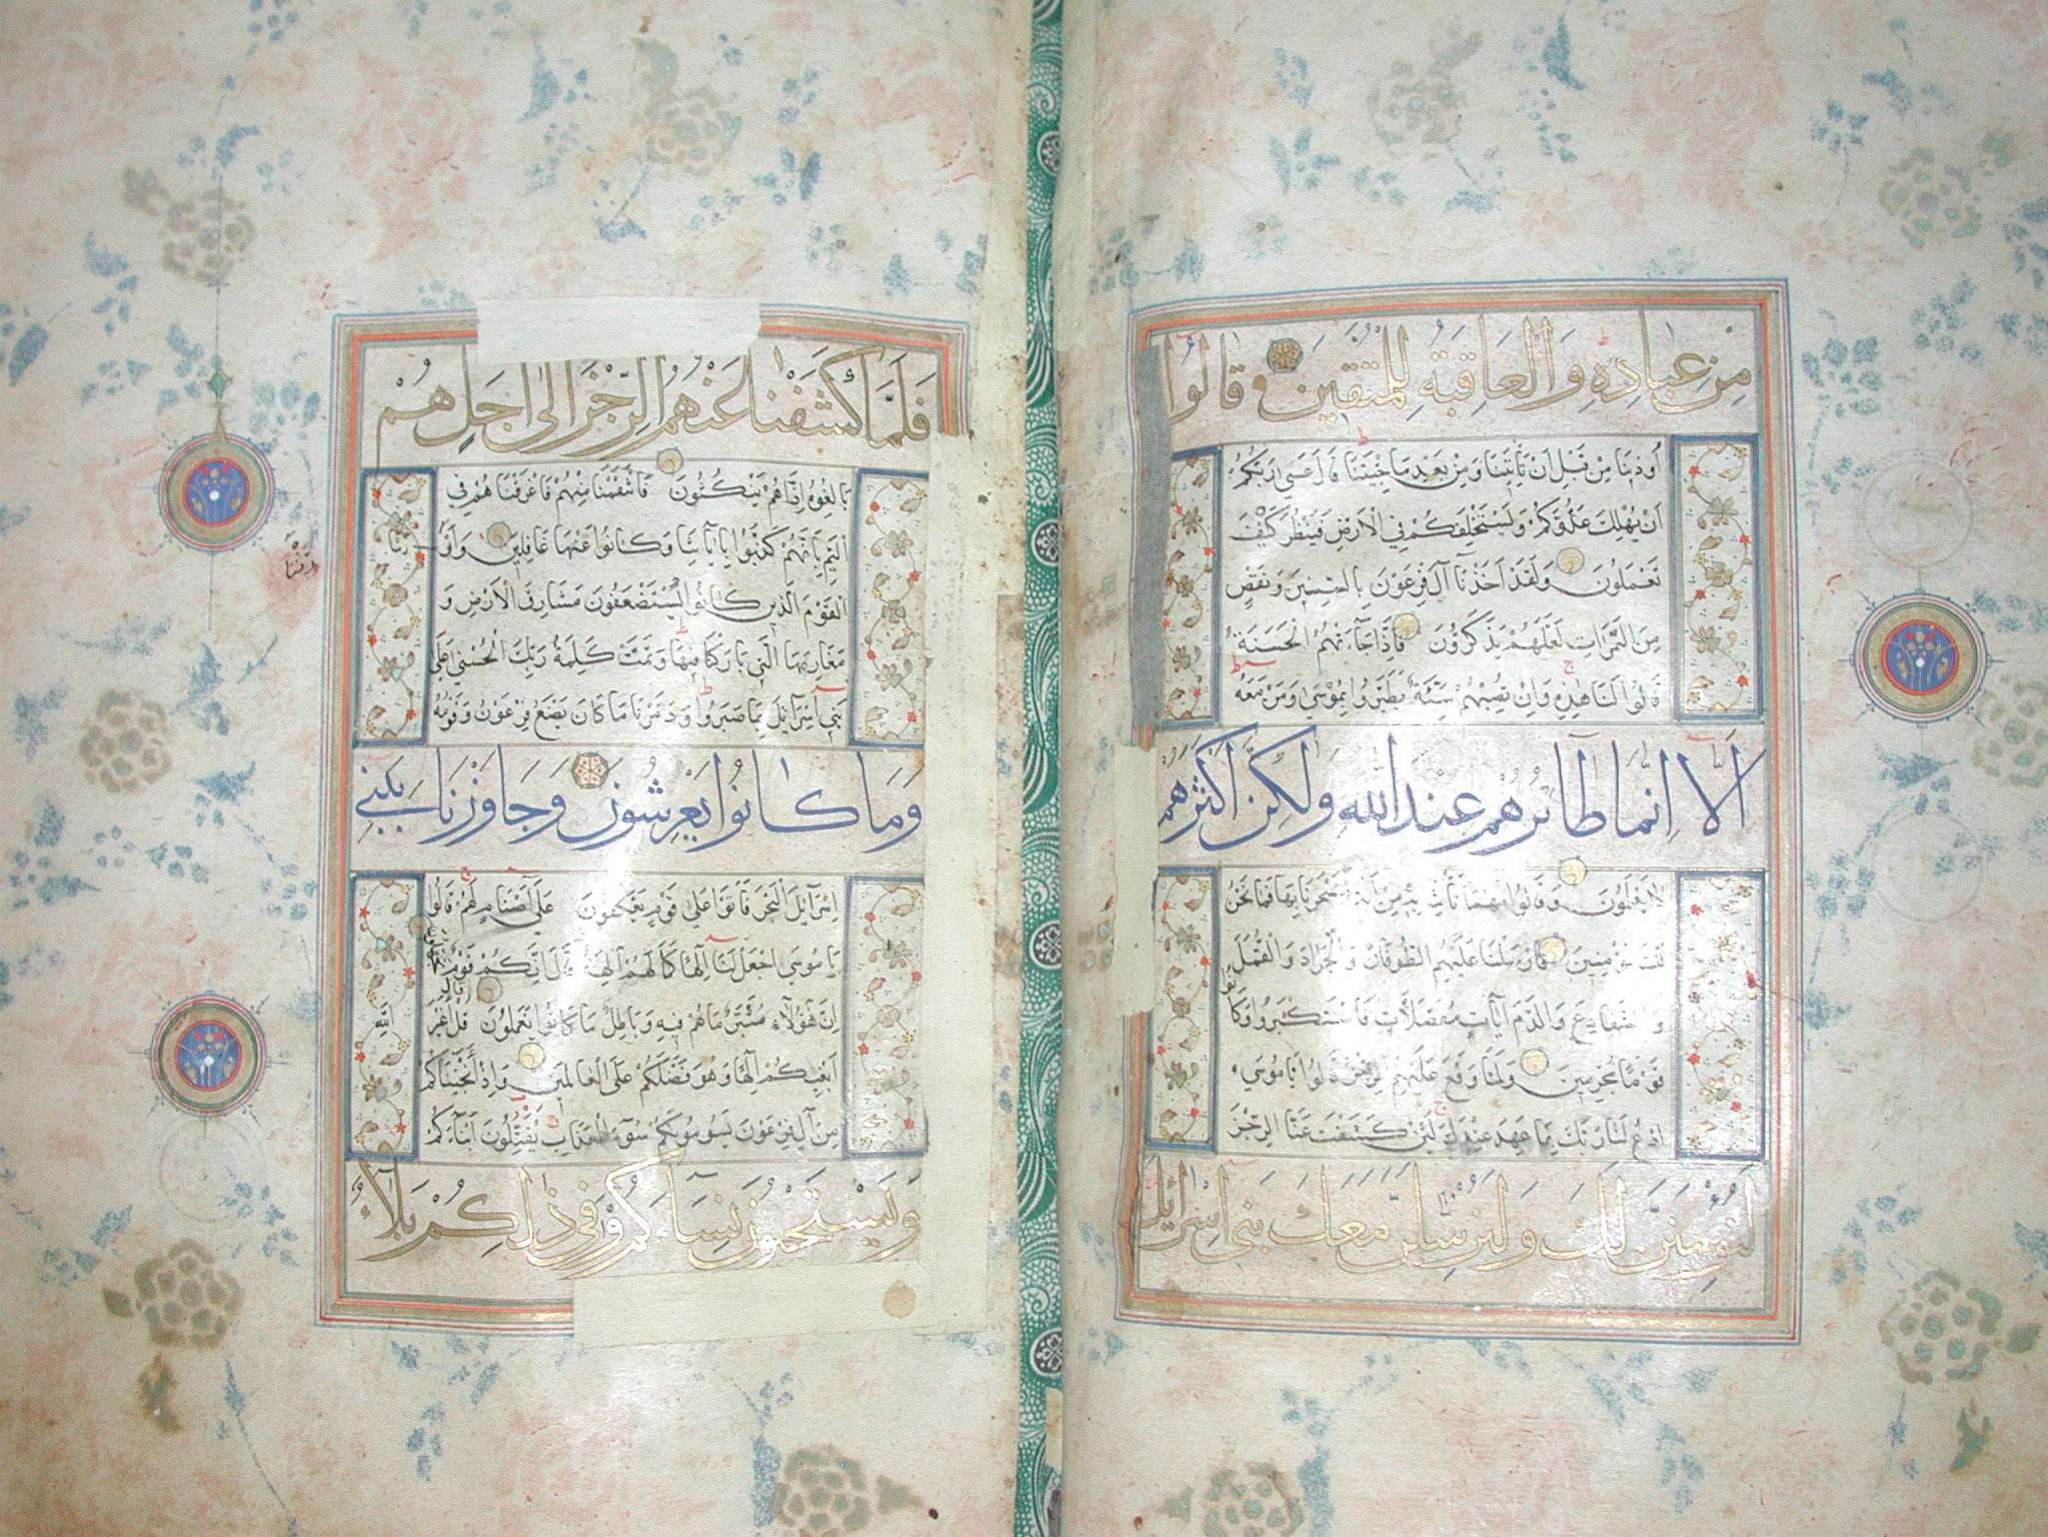 مِنْ عِبَادِهِ وَالْعَاقِبَةُ لِلْمُتَّقِينَ قَالُوا
أُوذِينَا مِنْ قَبْلِ أَنْ تَأْتِيَنَا وَمِنْ بَعْدِ مَا جِئْتَنَا قَالَ عَسَى رَبُّكُمْ
أَنْ يُهْلِكَ عَدُوَّكُمْ وَيَسْتَخْلِفَكُمْ فِي الْأَرْضِ فَيَنْظُرَ كَيْفَ
تَعْمَلُونَ وَلَقَدْ أَخَذْنَا آلَ فِرْعَوْنَ بِالسِّنِينَ وَنَقْصٍ
مِنَ الثَّمَرَاتِ لَعَلَّهُمْ يَذَّكَّرُونَ فَإِذَا جَاءَتْهُمُ الْحَسَنَةُ
قَالُوا لَنَا هَذِهِ وَإِنْ تُصِبْهُمْ سَيِّئَةٌ يَطَّيَّرُوا بِمُوسَى وَمَنْ مَعَهُ
أَلَا إِنَّمَا طَائِرُهُمْ عِنْدَ اللَّهِ وَلَكِنَّ أَكْثَرَهُمْ
لَا يَعْلَمُونَ وَقَالُوا مَهْمَا تَأْتِنَا بِهِ مِنْ آيَةٍ لِتَسْحَرَنَا بِهَا فَمَا نَحْنُ
لَكَ بِمُؤْمِنِينَ فَأَرْسَلْنَا عَلَيْهِمُ الطُّوفَانَ وَالْجَرَادَ وَالْقُمَّلَ
وَالضَّفَادِعَ وَالدَّمَ آيَاتٍ مُفَصَّلَاتٍ فَاسْتَكْبَرُوا وَكَانُوا
قَوْمًا مُجْرِمِينَ وَلَمَّا وَقَعَ عَلَيْهِمُ الرِّجْزُ قَالُوا يَا مُوسَى
ادْعُ لَنَا رَبَّكَ بِمَا عَهِدَ عِنْدَكَ لَئِنْ كَشَفْتَ عَنَّا الرِّجْزَ
لَنُؤْمِنَنَّ لَكَ وَلَنُرْسِلَنَّ مَعَكَ بَنِي إِسْرَائِيلَ
فَلَمَّا كَشَفْنَا عَنْهُمُ الرِّجْزَ إِلَى أَجَلٍ هُمْ
بَالِغُوهُ إِذَا هُمْ يَنْكُثُونَ فَانْتَقَمْنَا مِنْهُمْ فَأَغْرَقْنَاهُمْ فِي
الْيَمِّ بِأَنَّهُمْ كَذَّبُوا بِآيَاتِنَا وَكَانُوا عَنْهَا غَافِلِينَ وَأَوْرَثْنَا
الْقَوْمَ الَّذِينَ كَانُوا يُسْتَضْعَفُونَ مَشَارِقَ الْأَرْضِ وَ
مَغَارِبَهَا الَّتِي بَارَكْنَا فِيهَا وَتَمَّتْ كَلِمَةُ رَبِّكَ الْحُسْنَى عَلَى
بَنِي إِسْرَائِيلَ بِمَا صَبَرُوا وَدَمَّرْنَا مَا كَانَ يَصْنَعُ فِرْعَوْنُ وَقَوْمُهُ
وَمَا كَانُوا يَعْرِشُونَ وَجَاوَزْنَا بِبَنِي
إِسْرَائِيلَ الْبَحْرَ فَأَتَوْا عَلَى قَوْمٍ يَعْكُفُونَ عَلَى أَصْنَامٍ لَهُمْ قَالُوا
يَا مُوسَى اجْعَلْ لَنَا إِلَهًا كَمَا لَهُمْ آلِهَةٌ قَالَ إِنَّكُمْ قَوْمٌ تَجْهَلُونَ
إِنَّ هَؤُلَاءِ مُتَبَّرٌ مَا هُمْ فِيهِ وَبَاطِلٌ مَا كَانُوا يَعْمَلُونَ قَالَ أَغَيْرَ اللَّهِ
أَبْغِيكُمْ إِلَهًا وَهُوَ فَضَّلَكُمْ عَلَى الْعَالَمِينَ وَإِذْ أَنْجَيْنَاكُمْ
مِنْ آلِ فِرْعَوْنَ يَسُومُونَكُمْ سُوءَ الْعَذَابِ يُقَتِّلُونَ أَبْنَاءَكُمْ
وَيَسْتَحْيُونَ نِسَاءَكُمْ وَفِي ذَلِكُمْ بَلَاءٌ